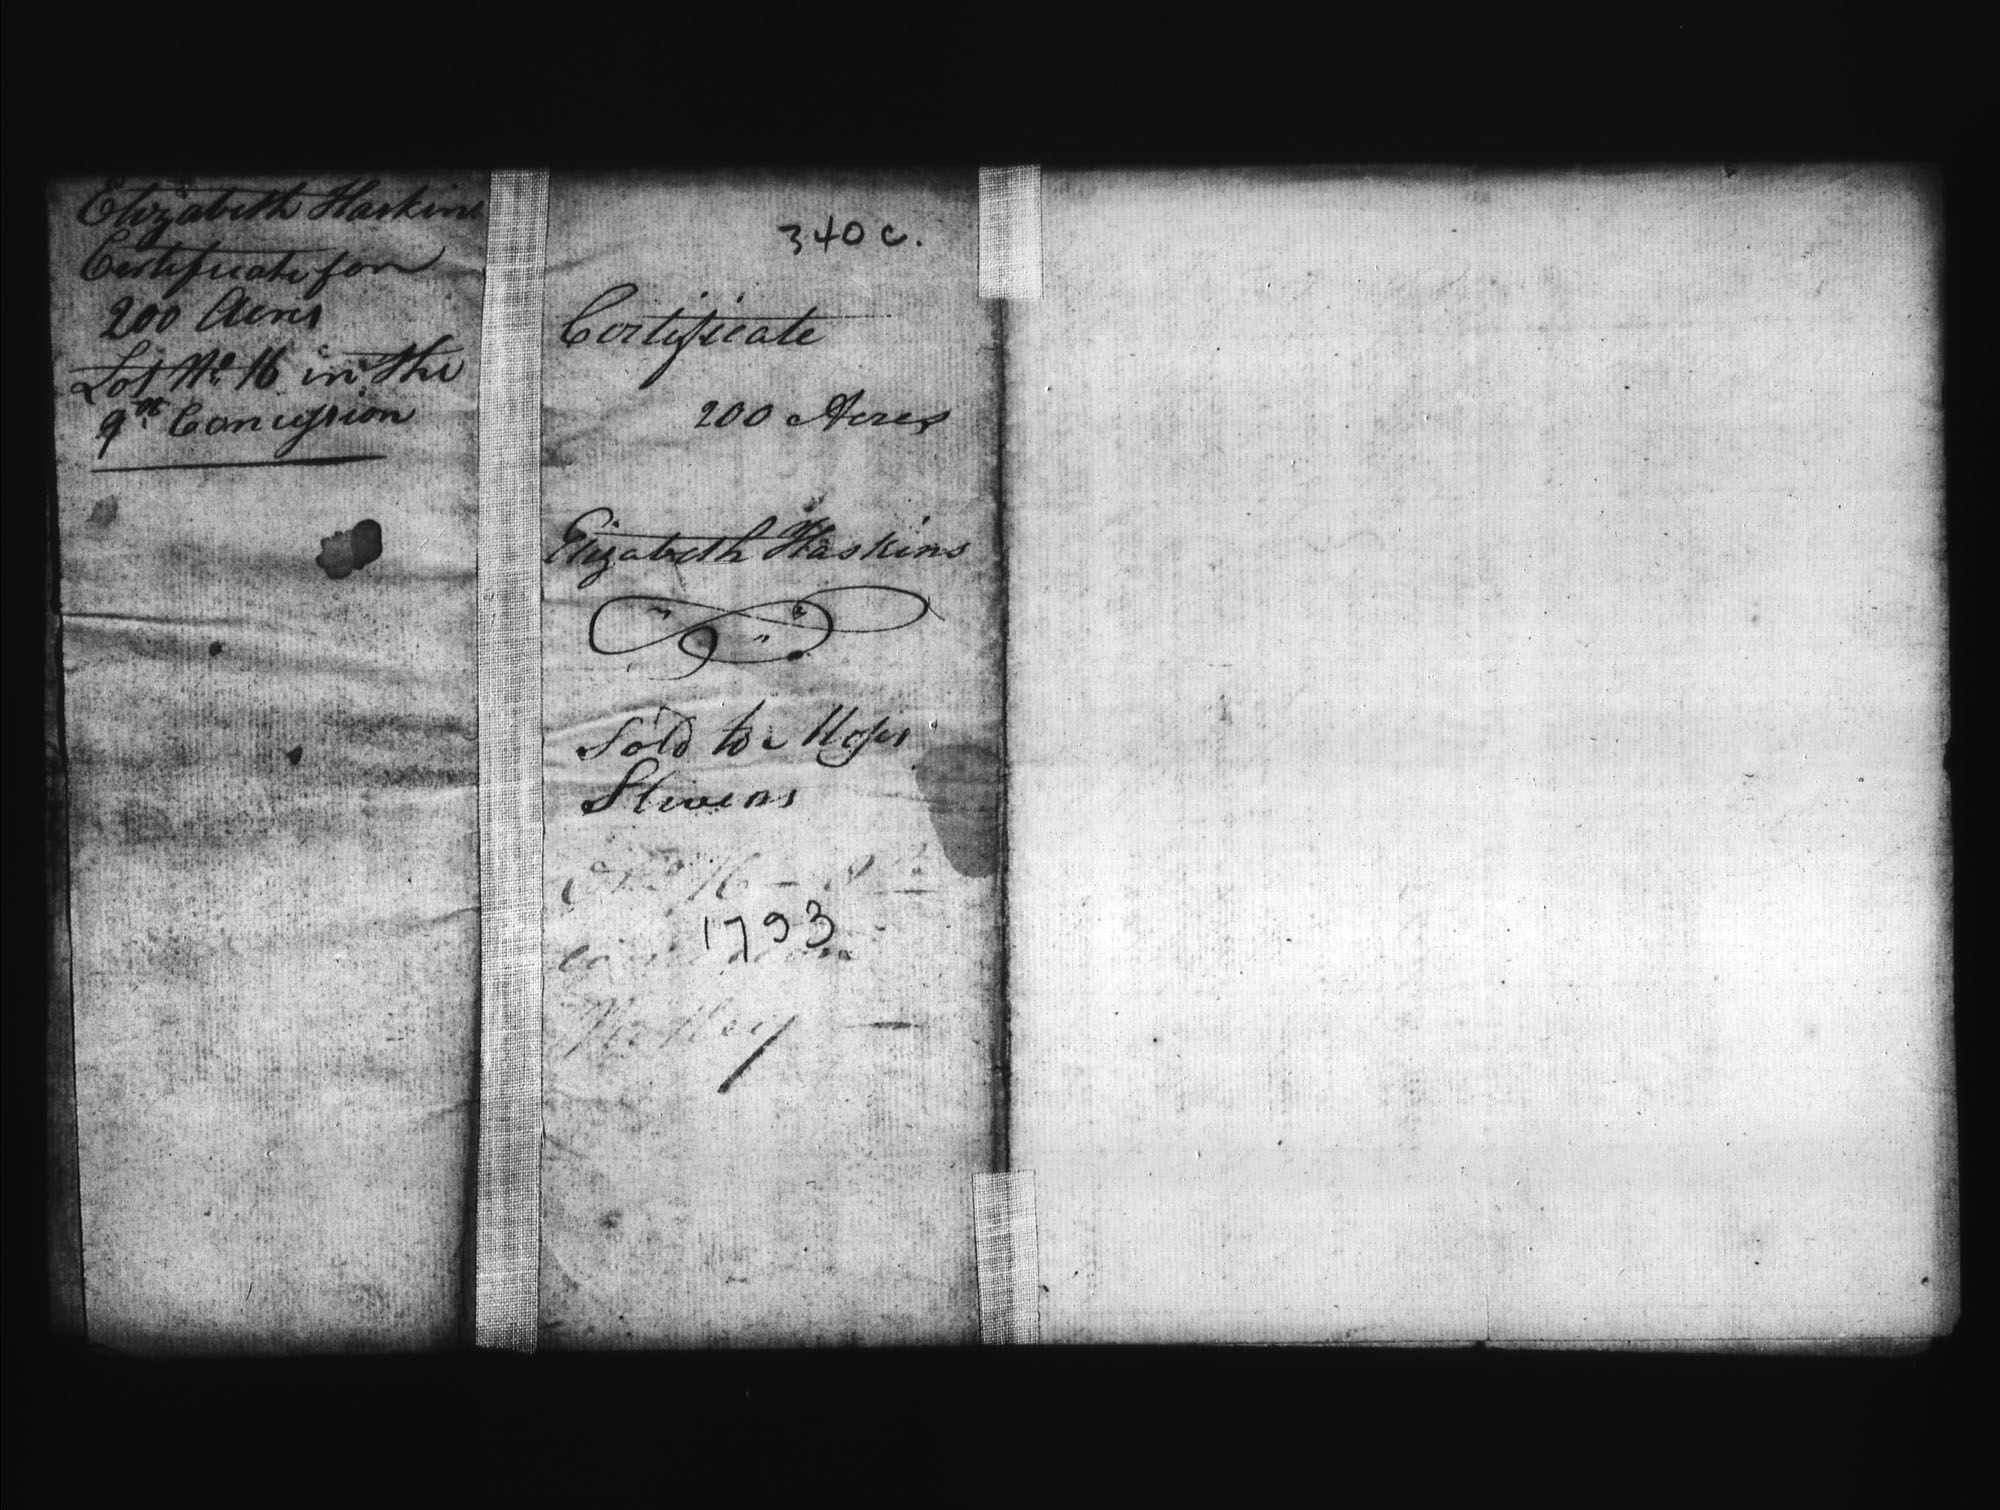 Elizabeth Haskins
Certificate for
200 Acres
Lot No. 16 in the
9th Concession
340 c.
Certificate
200 Acres
Elizabeth Haskins
Sold to Moses
Stevens
16 - 9
1793
concession